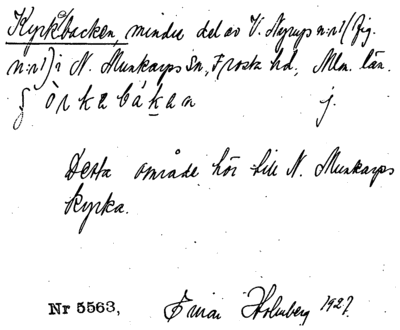 Kyrkbacken, mindre del av V. Nyrup n:r 1 (Jfg.
n:r 1) i N. Munkarps Sn, Frosta hd., Mlm. län.
j.
Detta område hör till N. Munkarps
kyrka.
Nr 5563, Holmberg 1927.